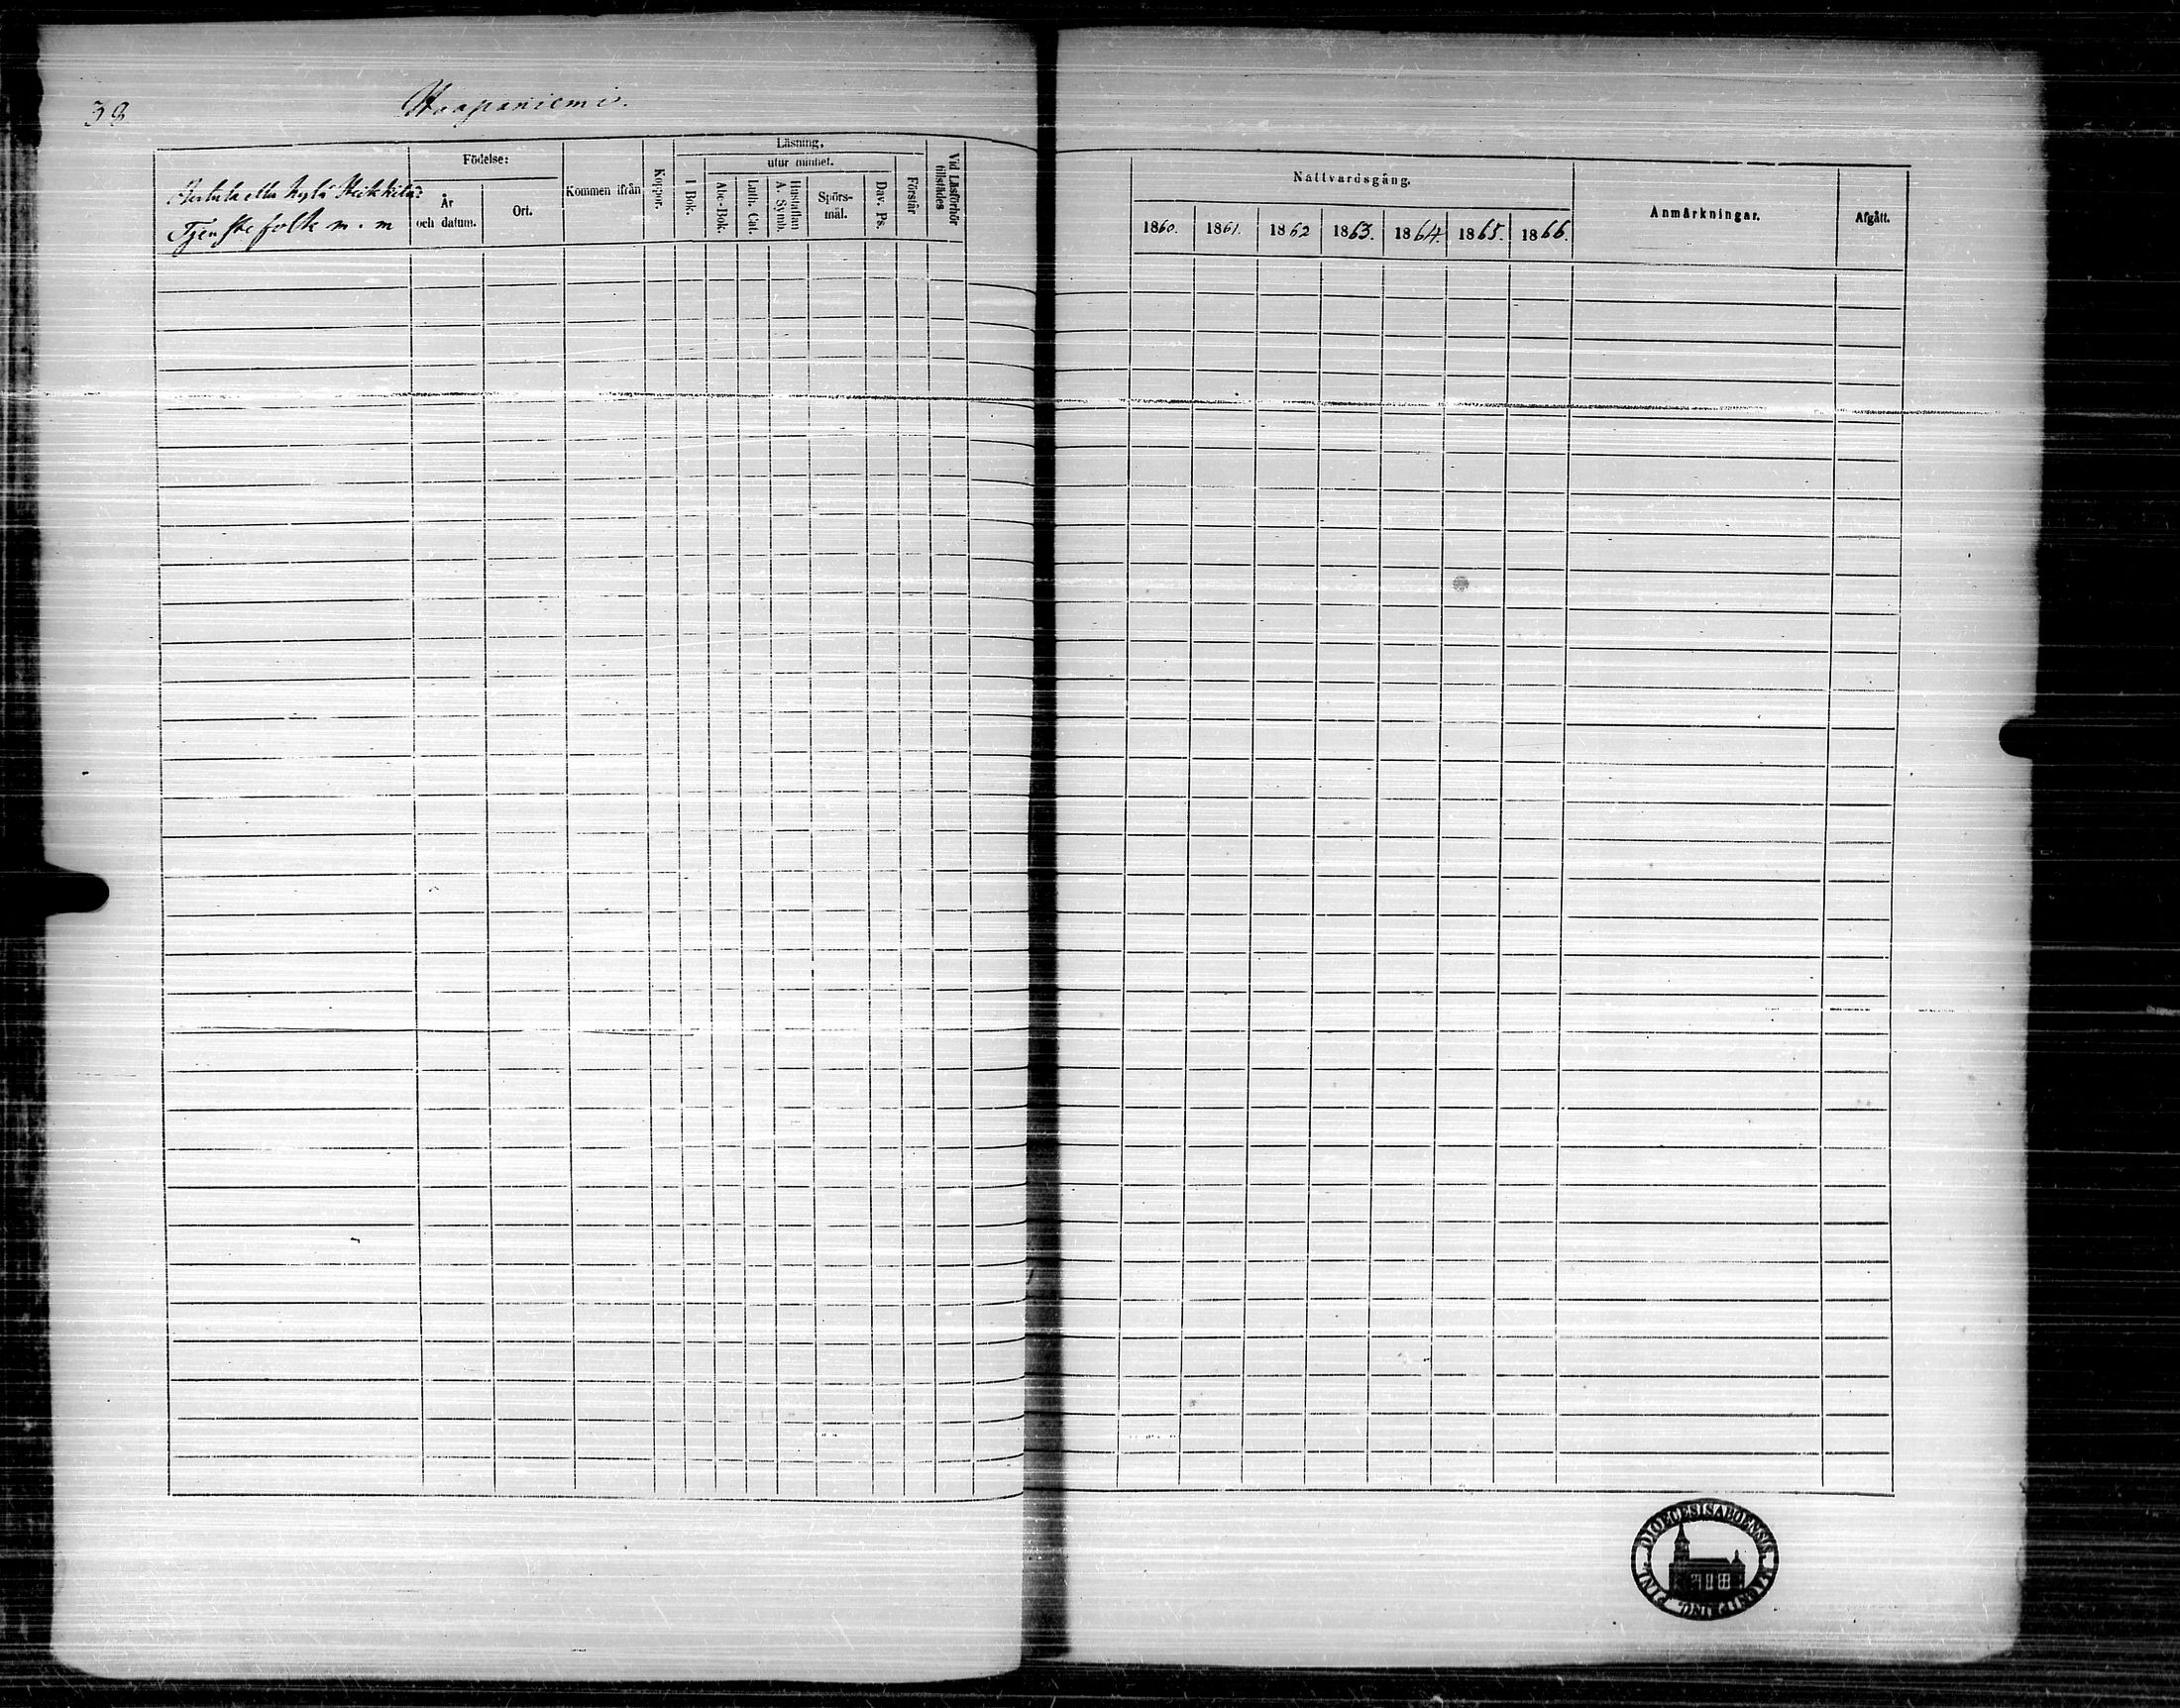 38
Haapaniemi.
Perttula eller Kylä Heikkilä:
Tjenstefolk m. m
Födelse:
År
och datum.
Ort.
Kommen ifrån
Koppor.
Läsning,
I Bok.
utur minnet.
Abc-Bok.
Luth. Cat.
Hustaflan
A. Symb.
Spörs-
mål.
Dav. Ps.
Förstår
Vid Läsförhör
tillstädes
Nattvardsgång.
1860.
1861.
1862
1863.
1864.
1865.
1866.
Anmärkningar.
Afgått.
DIOECESIS ABOENSIS
FINL.